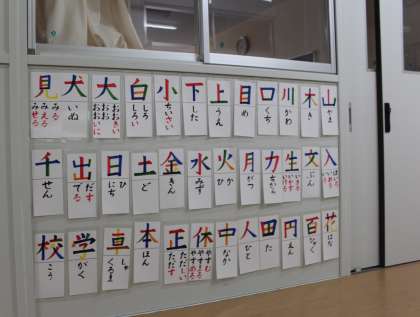 山
やま
木
き
川
かわ
口
くち
目
め
上
うえ
下
した
小
ちいさい
白
しろ
しろい
大
おおきい
おお
おおいに
犬
いぬ
見
みる
みえる
みせる
入
文
ぶん
生
力
ちから
月
がつ
火
ひ
か
水
みず
金
きん
土
ど
日
ひ
にち
出
だす
でる
千
せん
花
はな
百
ひゃく
円
えん
田
た
人
ひと
中
なか
休
やすむ
やすまる
やすめる
正
ただしい
ただす
本
ほん
車
しゃ
くるま
学
がく
校
こう